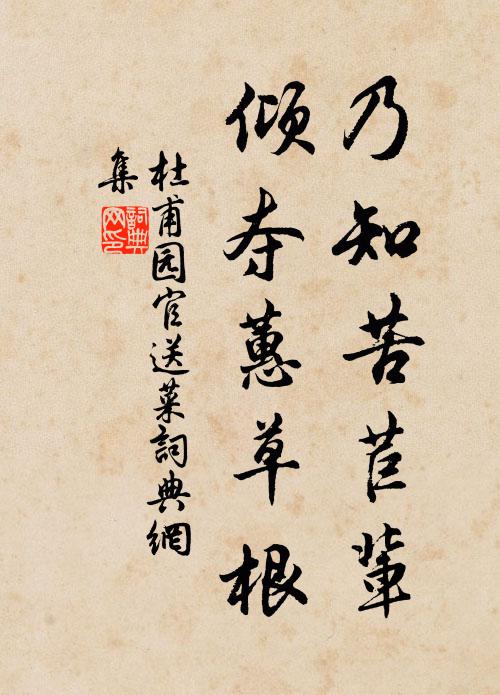 乃知苦苣輩
倾夺蕙草根
杜甫园官送菜詞典網
集
詞典网印